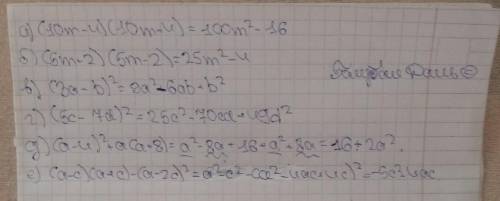 а) (10m-4)(10m+4)=100m²-16
б) (5m-2)(5m-2)=25m²-4
в) (3a-b)²=8a²-6ab+b²
г) (5c-7d)²=25c²-70cd+49d²
д) (a-4)²+a(a+8)=a²-8a+16+a²+8a=16+2a².
е) (a-c)(a+c)-(a-2c)²=a²-c²-(a²-4ac+4c)²=-5c²4ac